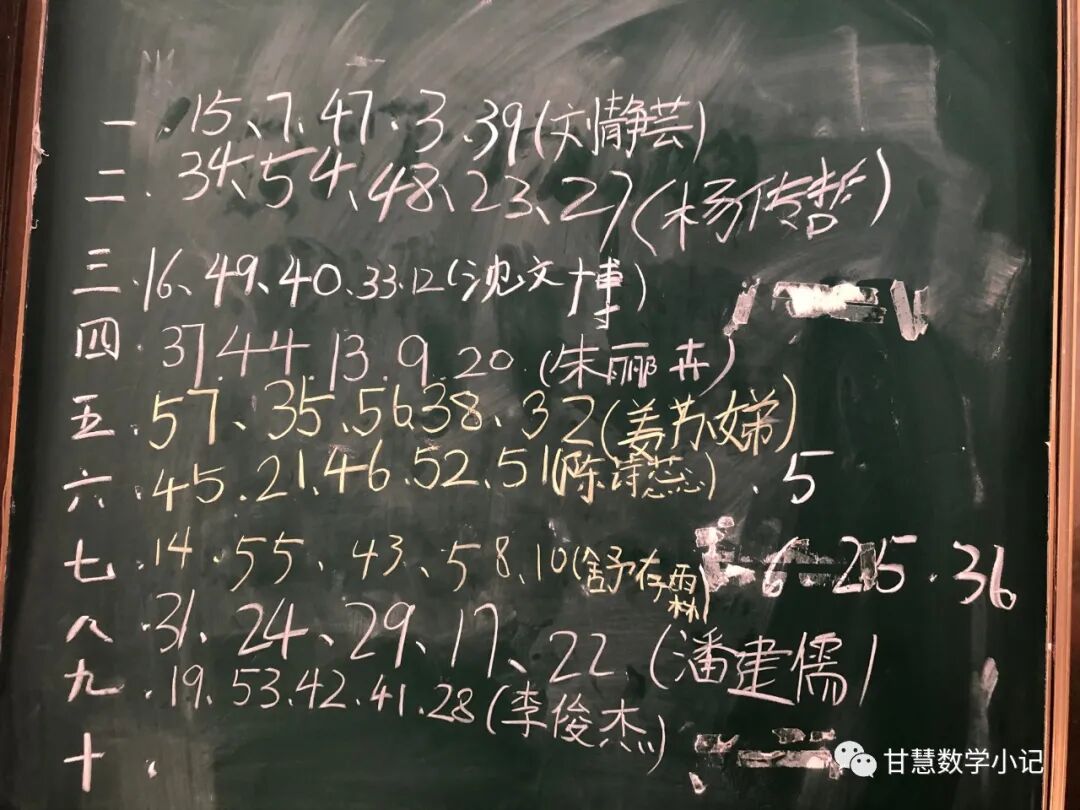 一.15、7、47、3、39(刘静芸)
二.34、54、48、23、27(杨传哲)
三.16、49、40、33.12(沈文博)
四.37.44.13.9.20.(朱丽卉)
五.57、35、56.38、32(姜苏娣)
六.45.21.46.52.51(陈诗蕊).5
七.14.55、43、58、10(舒存霖) 6 25.36
八.31、24、29、17、22(潘建儒)
九.19.53.42.41.28(李俊杰)
十.
甘慧数学小记